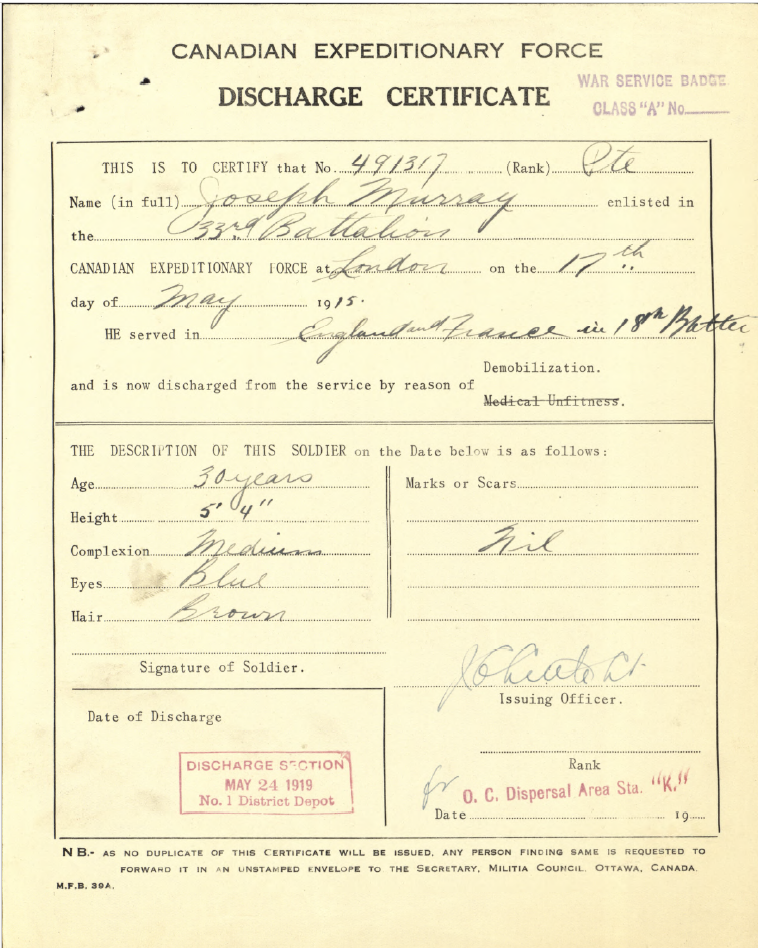 CANADIAN EXPEDITIONARY FORCE
DISCHARGE CERTIFICATE
WAR SERVICE BADGE
CLASS "A" No
THIS IS TO CERTIFY that No. 491317 (Rank) Pte
Name (in full) Joseph Murray enlisted in
the 33rd Battalion
CANADIAN EXPEDITIONARY FORCE at London on the 17th
day of May 1915.
HE served in England and France in 18th Batter
Demobilization.
and is now discharged from the service by reason of
Medical Unfitness.
THE DESCRIPTION OF THIS SOLDIER on the Date below is as follows:
Age 30 years
Marks or Scars
Height 5' 4"
Complexion Medium
Nil
Eyes Blue
Hair Brown
Signature of Soldier.
Issuing Officer.
Date of Discharge
DISCHARGE SECTION
MAY 24 1919
No. 1 District Depot
Rank
for O. C. Dispersal Area Sta. "K."
Date 19
NB.- AS NO DUPLICATE OF THIS CERTIFICATE WILL BE ISSUED, ANY PERSON FINDING SAME IS REQUESTED TO
FORWARD IT IN AN UNSTAMPED ENVELOPE TO THE SECRETARY, MILITIA COUNCIL, OTTAWA, CANADA.
M.F.B. 39A.